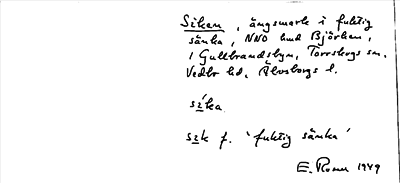 Siken, ängsmark i fuktig
sänka, NNO hmd Björken,
i Gullbrandsbyn, Torrskogs sn.
Vedbo hd. Älvsborgs l.
síka
sik f. 'fuktig sänka'
E. Rosen 1949